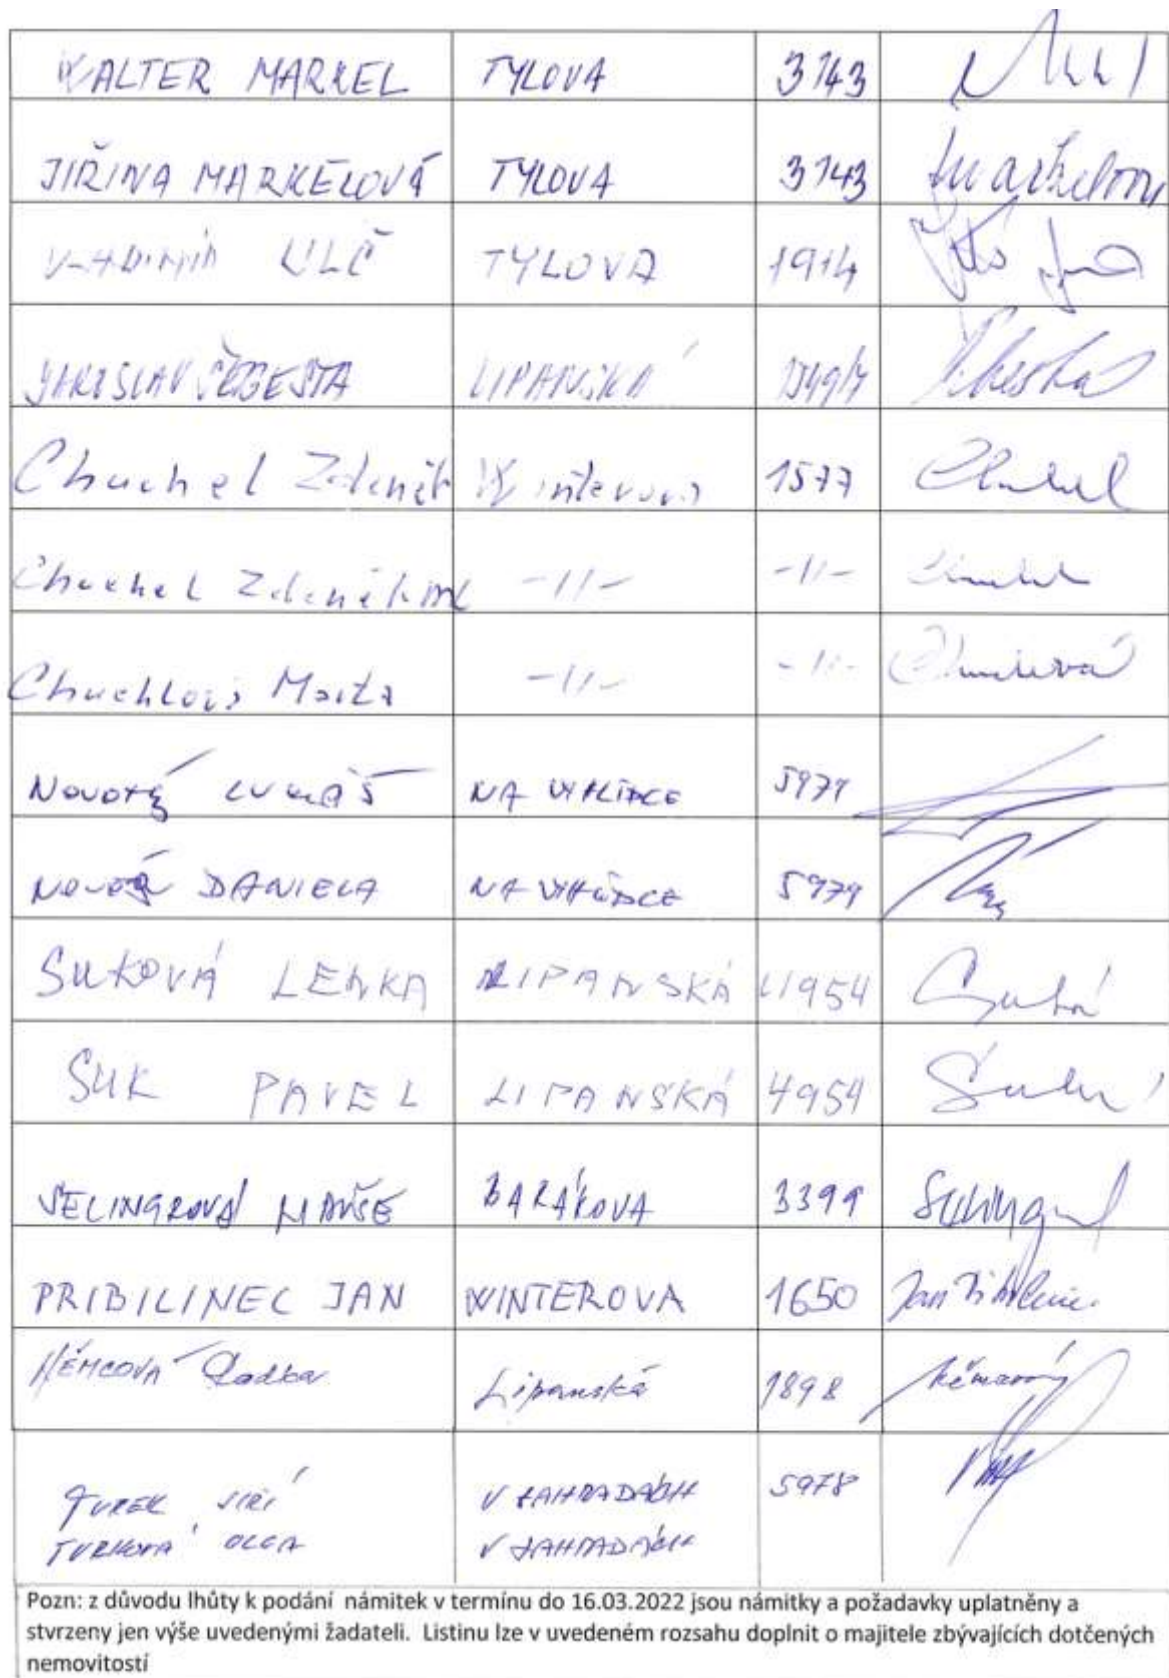 WALTER MARKEL TYLOVA 3743
JIŘINA MARKELOVÁ TYLOVA 3743 Markelová
ULČ TYLOVA 1914
JAROSLAV LIPANSKÁ
Chuchel Zdeněk Winterova 1577 Chuchel
Chuchel Zdeněk ml -11- -11- Chuchel
Chuchlová Marta -11- -11-
NOVOTNÝ LUKÁŠ NA VYHLÍDCE 5979
DANIELA NA VYHLÍDCE 5979
SUKOVÁ LENKA LIPANSKÁ 4954
SUK PAVEL LIPANSKÁ 4954
BARÁKOVA 3399
PRIBILINEC JAN WINTEROVA 1650 Jan
NĚMCOVÁ Radka Lipanská 1898 Němcová
TUREK JIŘÍ V ZAHRADÁCH 5978
TURKOVÁ OLGA V ZAHRADÁCH
Pozn: z důvodu lhůty k podání námitek v termínu do 16.03.2022 jsou námitky a požadavky uplatněny a
stvrzeny jen výše uvedenými žadateli. Listinu lze v uvedeném rozsahu doplnit o majitele zbývajících dotčených
nemovitostí